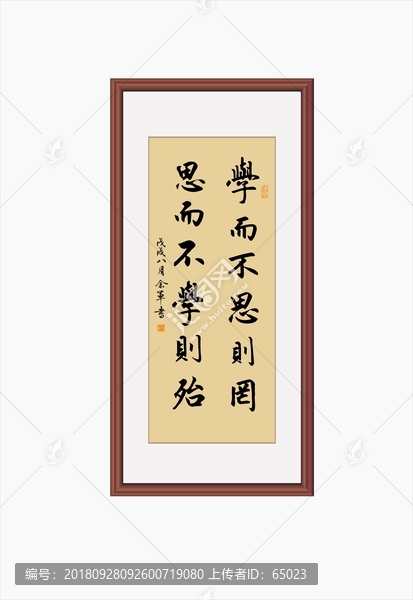 學而不思則罔
思而不學則殆
戊戌八月余軍書
编号：20180928092600719080 上传者ID：65023